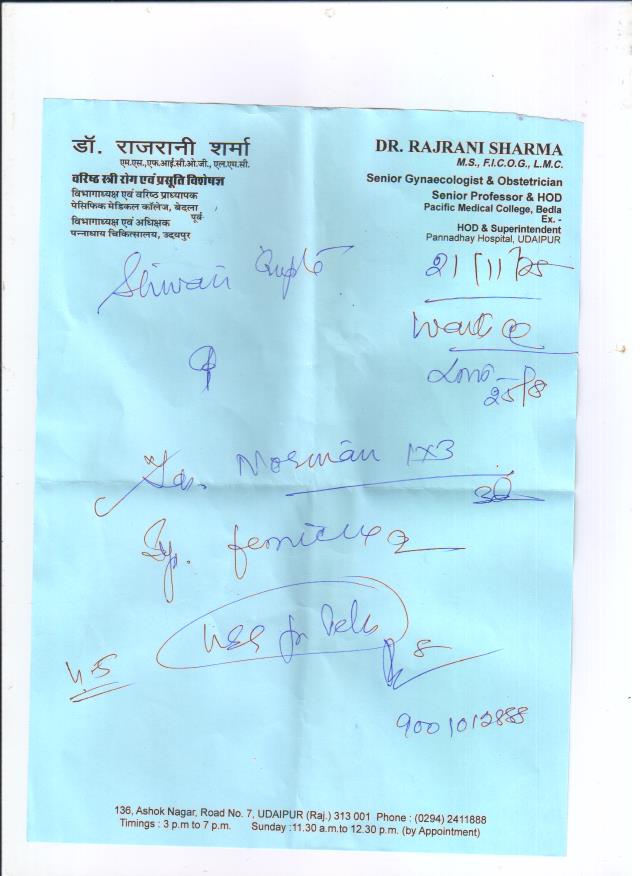 डॉ. राजरानी शर्मा
एम.एस.,एफ.आई.सी.ओ.जी., एल.एम.सी.
वरिष्ठ स्त्री रोग एवं प्रसूति विशेषज्ञ
विभागाध्यक्ष एवं वरिष्ठ प्राध्यापक
पेसिफिक मेडिकल कॉलेज, बेदला
पूर्व-
विभागाध्यक्ष एवं अधिक्षक
पन्नाधाय चिकित्सालय, उदयपुर
DR. RAJRANI SHARMA
M.S., F.I.C.O.G., L.M.C.
Senior Gynaecologist & Obstetrician
Senior Professor & HOD
Pacific Medical College, Bedla
Ex. -
HOD & Superintendent
Pannadhay Hospital, UDAIPUR
Shivani Gupta
21/11/25
25/8
1x3
USG for Pelvis
9001012888
136, Ashok Nagar, Road No. 7, UDAIPUR (Raj.) 313 001 Phone : (0294) 2411888
Timings : 3 p.m to 7 p.m. Sunday :11.30 a.m.to 12.30 p.m. (by Appointment)